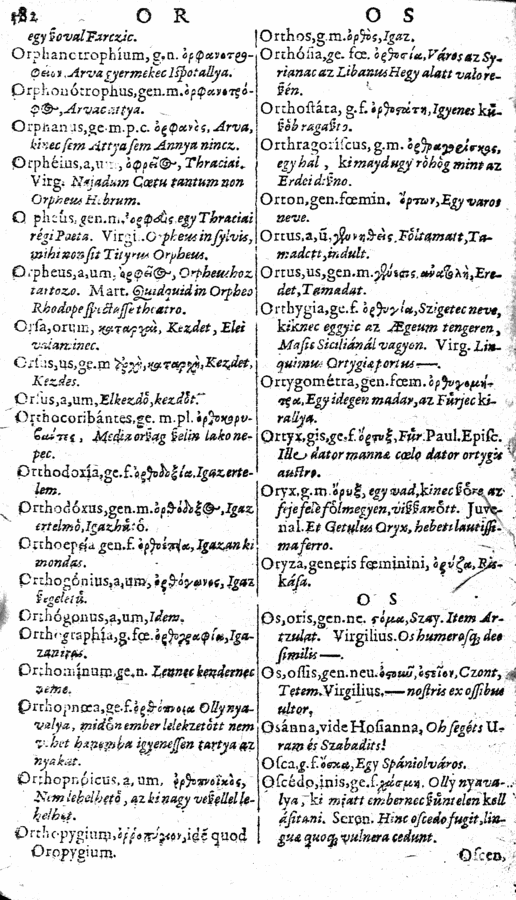 582 O R
egy ſoval Farczic.
Orphanotrophium, g.n. ὀρφανοτρο-
φεῖον, Arva gyermekec Iſpotallya.
Orphonótrophus, gen.m. ὀρφανοτρό-
φ, Arvac attya.
Orphanus, ge.m.p.c. ὀρφανὸς, Arva,
kinec ſem Attya ſem Annya nincz.
Orphéius, a, um, Thraciai.
Virg. Najadum Cœtu tantum non
Orpheus Hebrum.
Orpheús, gen.n. ὀρφεὺς, egy Thraciai
régi Poeta. Virgi. Orpheus in ſylvis,
mihi non ſit Tityrus Orpheus.
Orpheus, a, um, Orpheushoz
tartozo. Mart. Quidquid in Orpheo
Rhodope ſpectaſſe theatro.
Orſa, orum, καταρχὴ, Kezdet, Elei
valaminec.
Orſus, us, ge.m. καταρχὴ, Kezdet,
Kezdes.
Orſus, a, um, Elkezdő, kezdőt.
Orthocoribántes, ge. m. pl. ὀρθοκορυ-
βάντες, Mediaorſzag ſzelin lako ne-
pec.
Orthodoxia, ge.f. ὀρθοδοξία, Igaz erte-
lem.
Orthodóxus, gen.m. Igaz
ertelmő, Igaz hűtő.
Orthoepeia gen.f. ὀρθοέπεια, Igazan ki
mondas.
Orthogónius, a, um, ὀρθόγωνος, Igaz
ſzegeletű.
Orthógonus, a, um, Idem.
Orthographia, g.fœ. ὀρθογραφία, Iga-
zaniras.
Orthominum, ge.n. Lennec kendernec
neme.
Orthopnœa, ge.f. ὀρθόπνοια Olly nya-
valya, midőn ember lelekzetőtt nem
vőhet hanemha igyeneſſen tartya az
nyakat.
Orthopnóicus, a, um, ὀρθοπνοϊκὸς,
Nem lehelhető, az ki nagy veſzſzel le-
helhet.
Orthopygium, ὀρροπύγιον, idẽ quod
Oropygium.
O S
Orthos, g.m. ὀρθὸς, Igaz.
Orthóſia, ge. fœ. ὀρθοσία, Város az Sy-
rianac az Libanus Hegy alatt valo re-
ſzén.
Orthoſtáta, g.f. ὀρθοστάτη, Igyenes kű-
ſzőb ragaſzto.
Orthragoriſcus, g.m. ὀρθραγορίσκος,
egy hal, ki mayd ugy röhög mint az
Erdei diſzno.
Orton, gen.fœmin. ὄρτων, Egy varos
neve.
Ortus, a, ũ, γεννηθεὶς, Főltamatt, Ta-
madett, indult.
Ortus, us, gen.m. γένεσις, ἀνατολὴ, Ere-
det, Tamadat.
Orthygia, ge.f. ὀρθυγία, Szigetec neve,
kiknec eggyic az Ægeum tengeren,
Maſic Siciliánál vagyon. Virg. Lin-
quimus Ortygiæ portus —.
Ortygométra, gen.fœm. ὀρθυγομή-
τρα, Egy idegen madar, az Fűrjec ki-
rallya.
Ortyx, gis, ge.f. ὄρτυξ, Fűr. Paul. Epiſc.
Ille dator mannæ cœlo dator ortygis
auſtro.
Oryx, g.m. ὄρυξ, egy vad, kinec ſzőre az
feje fele főlmegyen, viſzſzanőtt. Juve-
nal. Et Getulus Oryx, hebeti lautiſſi-
ma ferro.
Oryza, generis fœminini, ὀρύζα, Ris-
káſa.
O S
Os, oris, gen.ne. στόμα, Szay. Item Ar-
tzulat. Virgilius. Os humeroſq; deo
ſimilis —.
Os, oſſis, gen.neu. ὀστοῦν, ὀστέον, Czont,
Tetem. Virgilius. — noſtris ex oſſibus
ultor,
Osánna, vide Hoſianna, Oh ſegéts U-
ram és Szabadits!
Oſca, g.f. ὄσκα, Egy Spániol város.
Oſcédo, inis, ge.f. χάσμη. Olly nyava-
lya, ki miatt embernec ſzűntelen kell
áſitani. Seron. Hinc oſcedo fugit, lin-
guæ quoq; vulnera cedunt.
Oſcen,